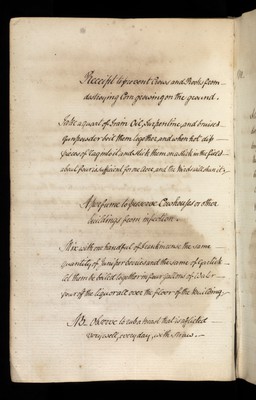 Receipt to prevent Crows and Rooks from
destroying Corn growing on the ground.
Take a quart of Train Oil, Turpentine, and bruised
Gunpowder boil them together, and when hot dip
pieces of rag in it, and stick them on a stick in the field
about four is sufficient for one Acre, and the birds will shun it
A perfume to preserve Cowhouses or other
buildings from infection.
Mix with one handful of Frankincense the same
quantity of Juniper berries and the same of Garlick
let them be boiled together in four gallons of Water
pour of the liquor all over the floor of the building.
NB. Observe to rub a beast that is afflicted
very well, every day, with straw.